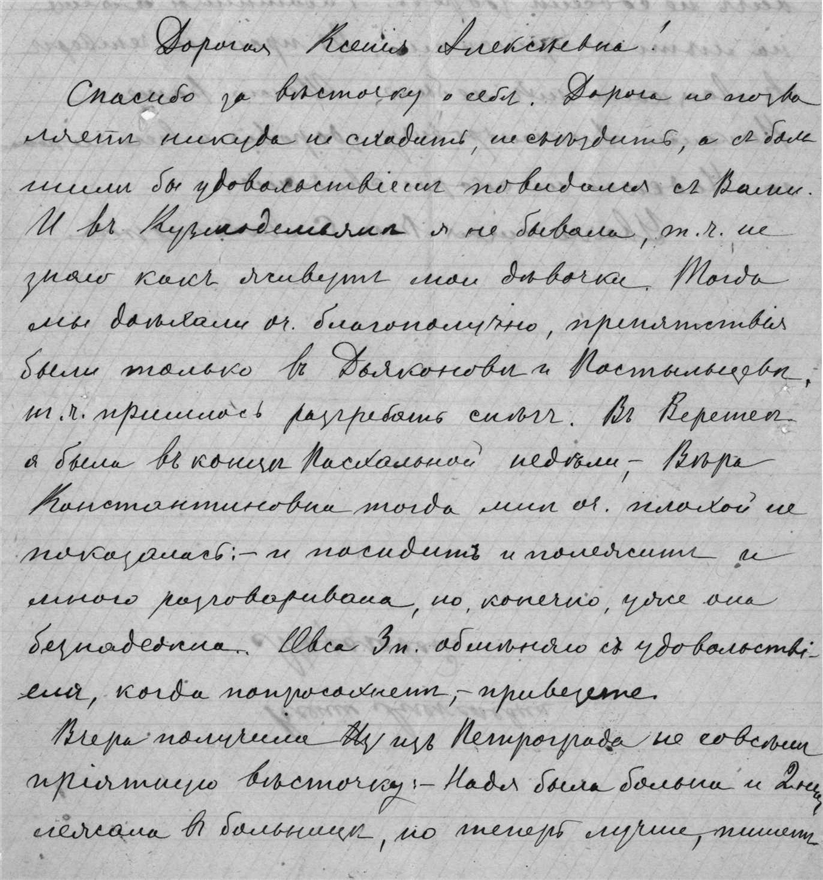 Дорогая Ксенія Алексѣевна!
Спасибо за вѣсточку о себѣ. Дорога не позво
ляетъ никуда не сходить, не съѣздить, а съ боль
шимъ бы удовольствіемъ повидался съ Вами.
И въ Кузмодемьянѣ я не бывала, т.ч. не
знаю какъ живутъ мои дѣвочки. Тогда
мы доѣхали оч. благополучно, препятствія
были только въ Дьяконовѣ и Постыльцевѣ,
т.ч. пришлось разгребать снѣгъ. Въ Веретеѣ
я была въ концѣ Пасхальной недѣли, – Вѣра
Константиновна тогда мнѣ оч. плохой не
показалась: – и посидитъ и полежитъ и
много разговаривала, но, конечно, уже она
безнадежна. Овса 3 п. обмѣняю съ удовольстві-
емъ, когда попросохнетъ, – привезете.
Вчера получила изъ Петрограда не совсѣмъ
пріятную вѣсточку: – Надя была больна и 2 нед.
лежала въ больницѣ, но теперь лучше, пишетъ